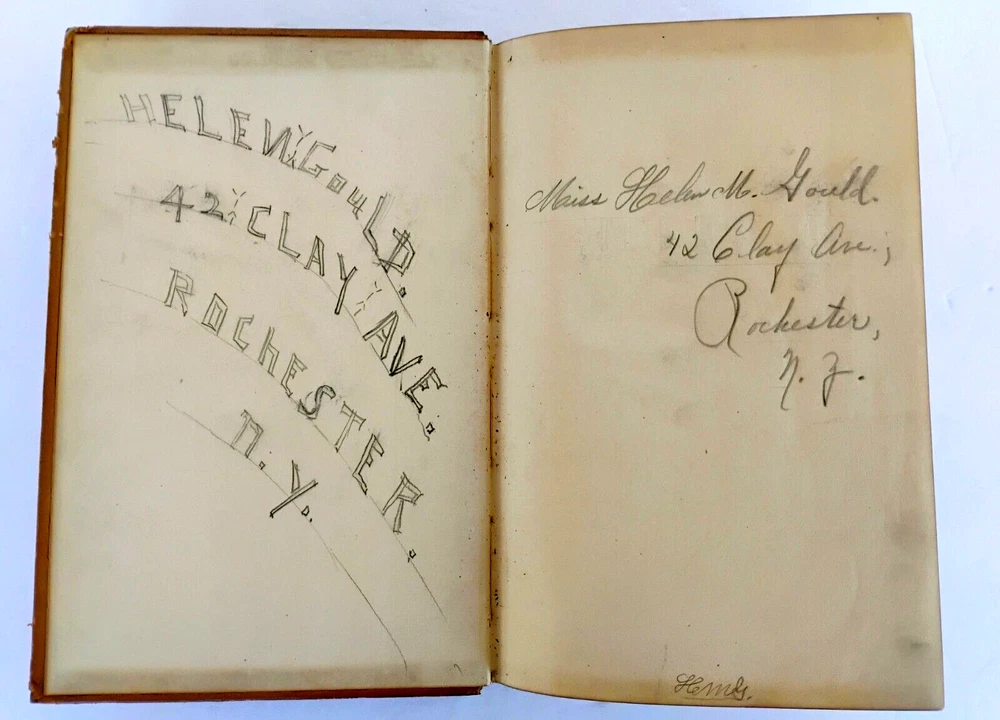 HELEN GouLD.
42 CLAY AVE.
ROChESTER.
N. Y.
Miss Helen M. Gould.
42 Clay Ave.,
Rochester,
N. Y.
HMG.